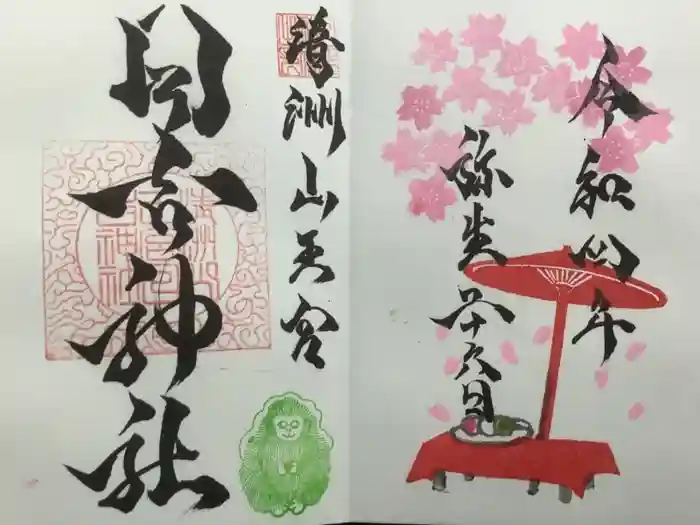 令和四年
弥生二十六日
清洲山王宮
日吉神社